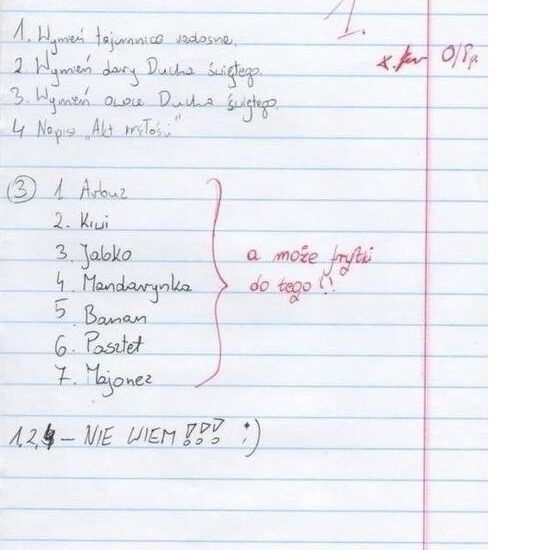 1.
1. Wymień tajemnice radosne.
2 Wymień dary Ducha świętego.
0/8p.
3. Wymień owoce Ducha świętego.
4 Napisz „Akt miłości"
3 1 Arbuz
2. Kiwi
3. Jabko
4. Mandarynka
5 Banan
6. Pasztet
7. Majonez
a może frytki
do tego!!
1,2,4 – NIE WIEM!!! ;)